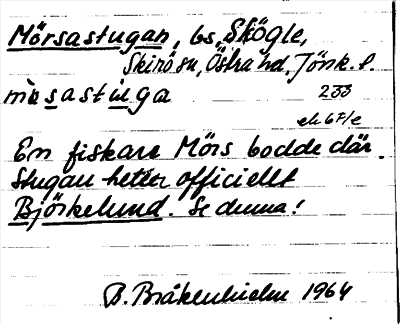 Mörsastugan, bs, Skögle,
Skirö sn, Östra hd, Jönk. l.
mösastuga 233
ek 6F/e
En fiskare Mörs bodde där.
Stugan heter officiellt
Björkelund. Se denna!
B. Bråkenhielm 1964